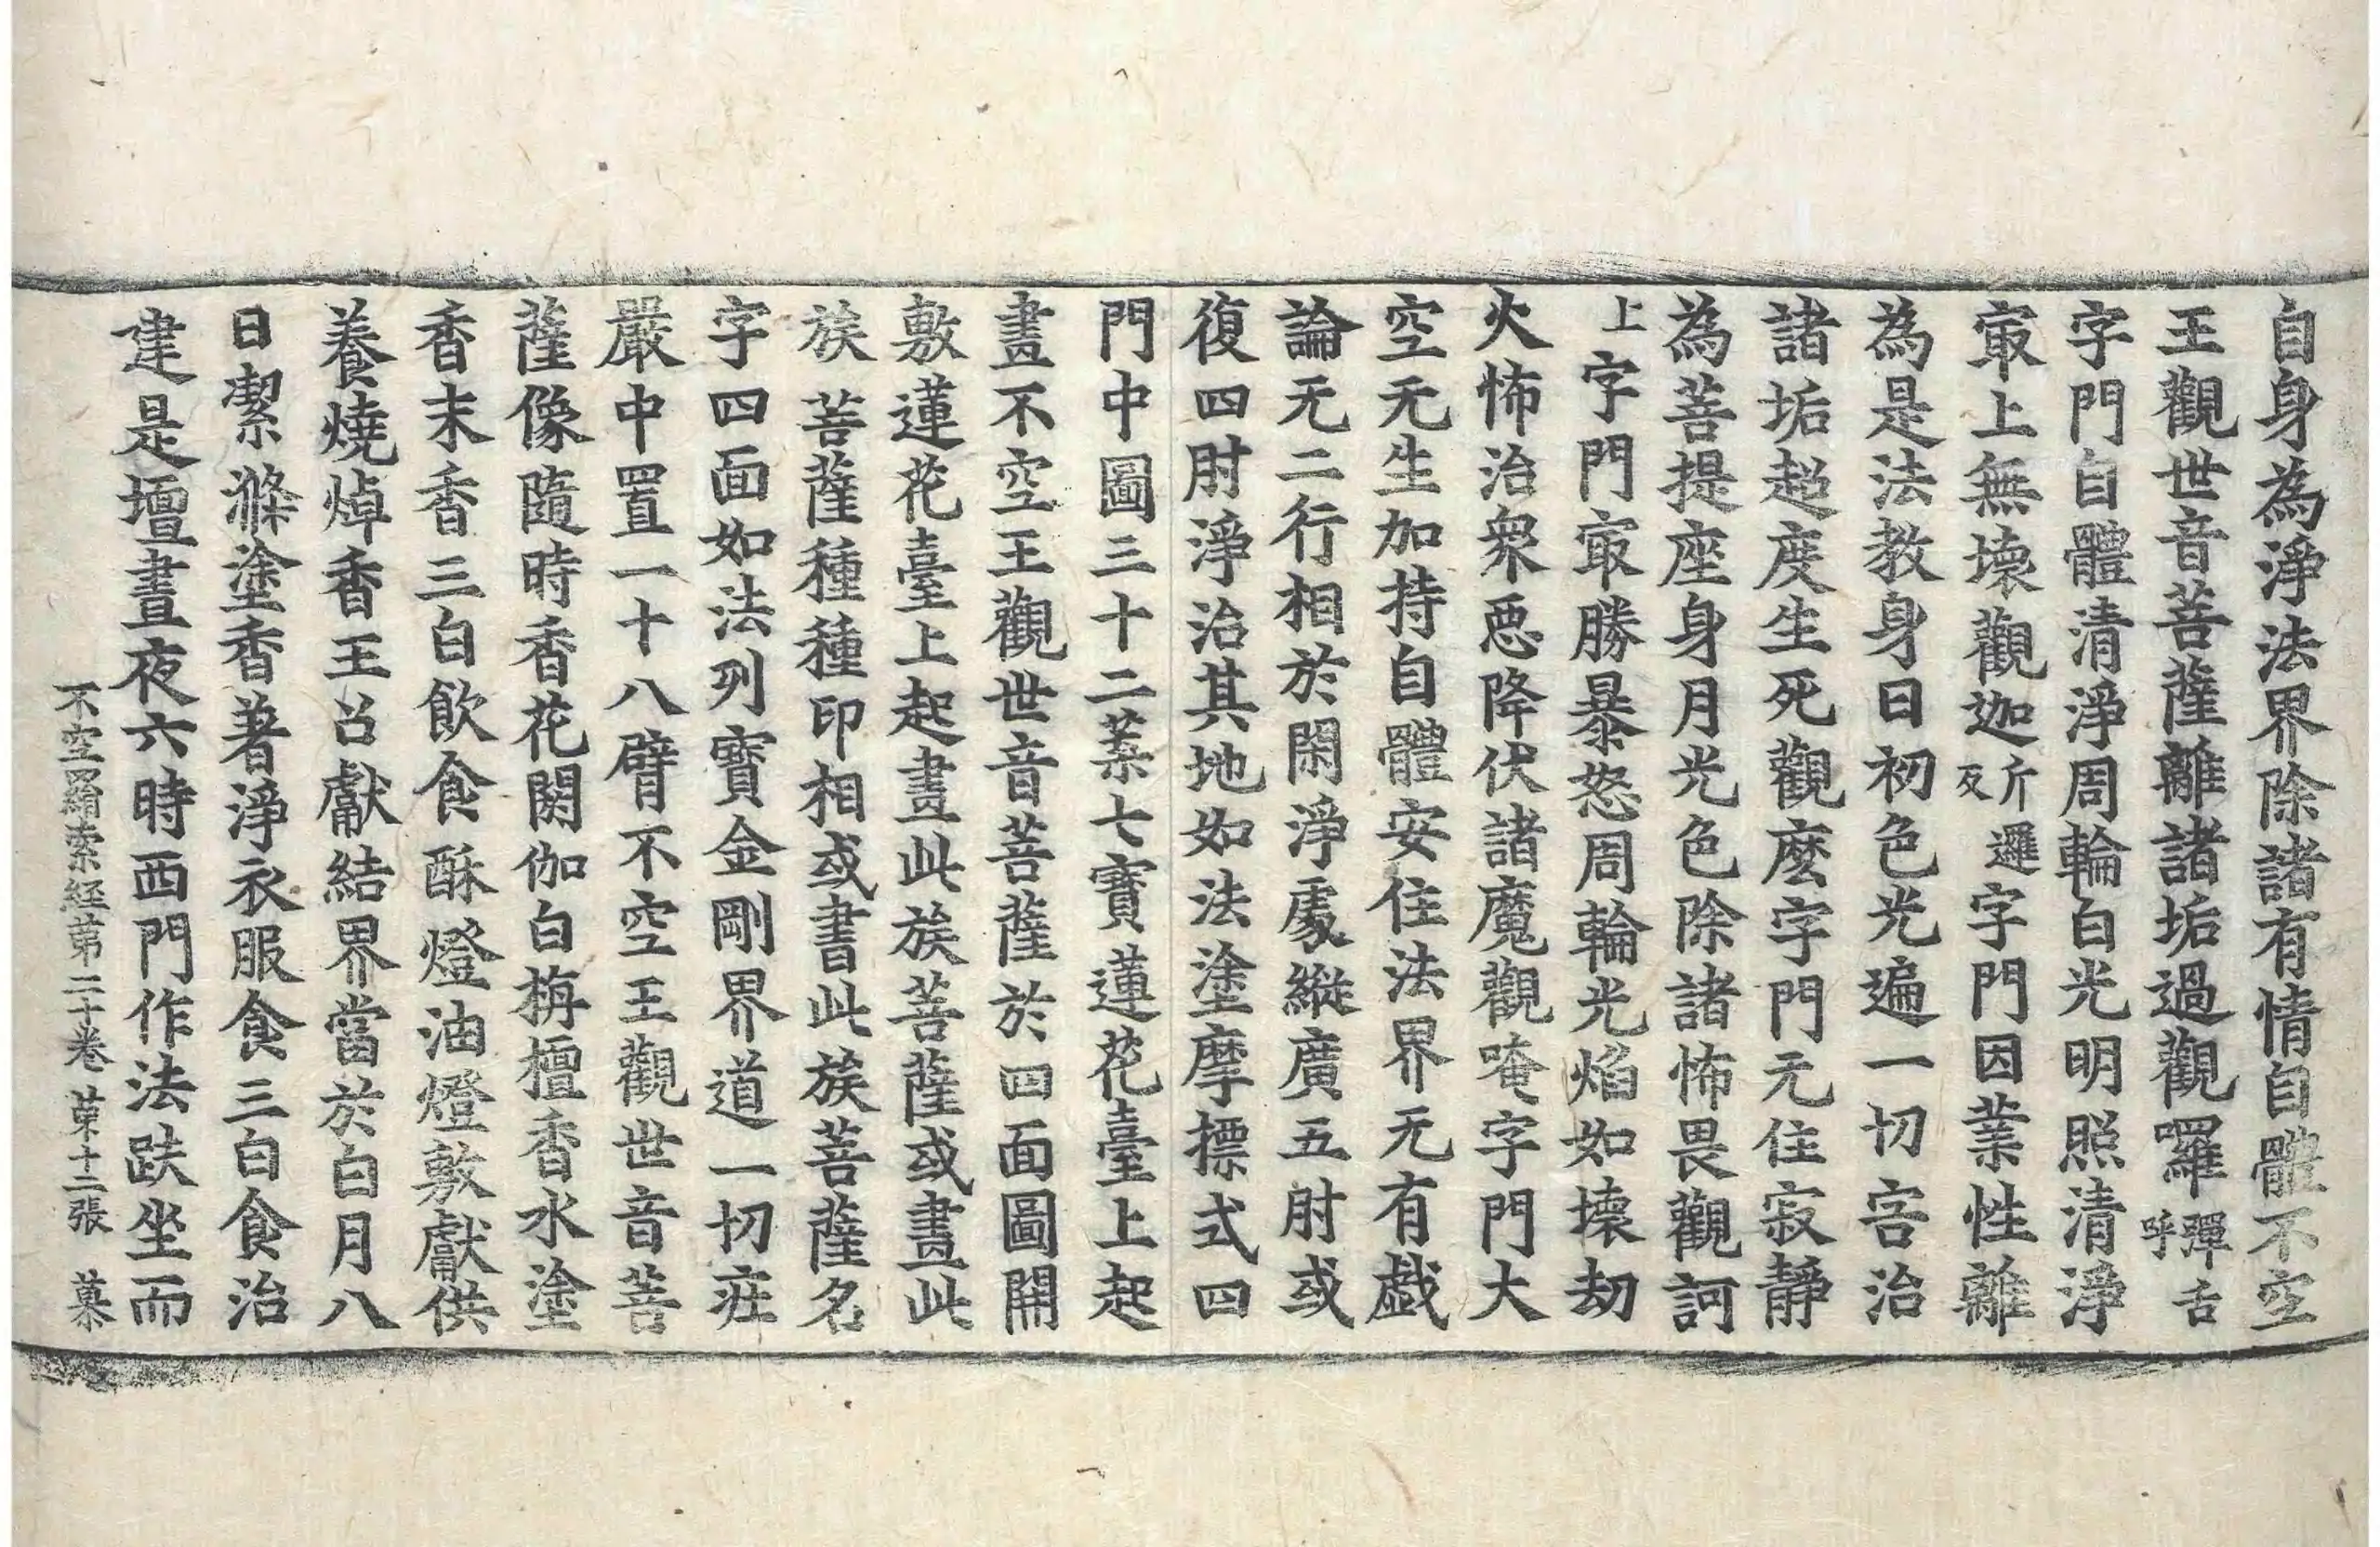 自身為淨法界除諸有情自體不空
王觀世音菩薩離諸垢過觀囉彈舌呼
字門自體清淨周輪白光明照清淨
㝡上無壞觀迦斤邏反字門因業性離
為是法教身日初色光遍一切害治
諸垢超度生死觀麽字門无住寂靜
為菩提座身月光色除諸怖畏觀訶
上字門㝡勝暴怒周輪光焰如壞劫
火怖治衆惡降伏諸魔觀唵字門大
空无生加持自體安住法界无有戲
論无二行相於閑淨處縱廣五肘或
復四肘淨治其地如法塗摩摽式四
門中圖三十二葉七寶蓮花臺上起
畫不空王觀世音菩薩於四面圖開
敷蓮花臺上起畫此族菩薩或畫此
族菩薩種種印相或書此族菩薩名
字四面如法列寶金剛界道一切莊
嚴中置一十八臂不空王觀世音菩
薩像隨時香花閼伽白栴檀香水塗
香末香三白飲食酥燈油燈敷獻供
養燒焯香王召獻結界當於白月八
日潔滌塗香著淨衣服食三白食治
建是壇晝夜六時西門作法趺坐而
不空羂索経第二十卷 第十二張 慕